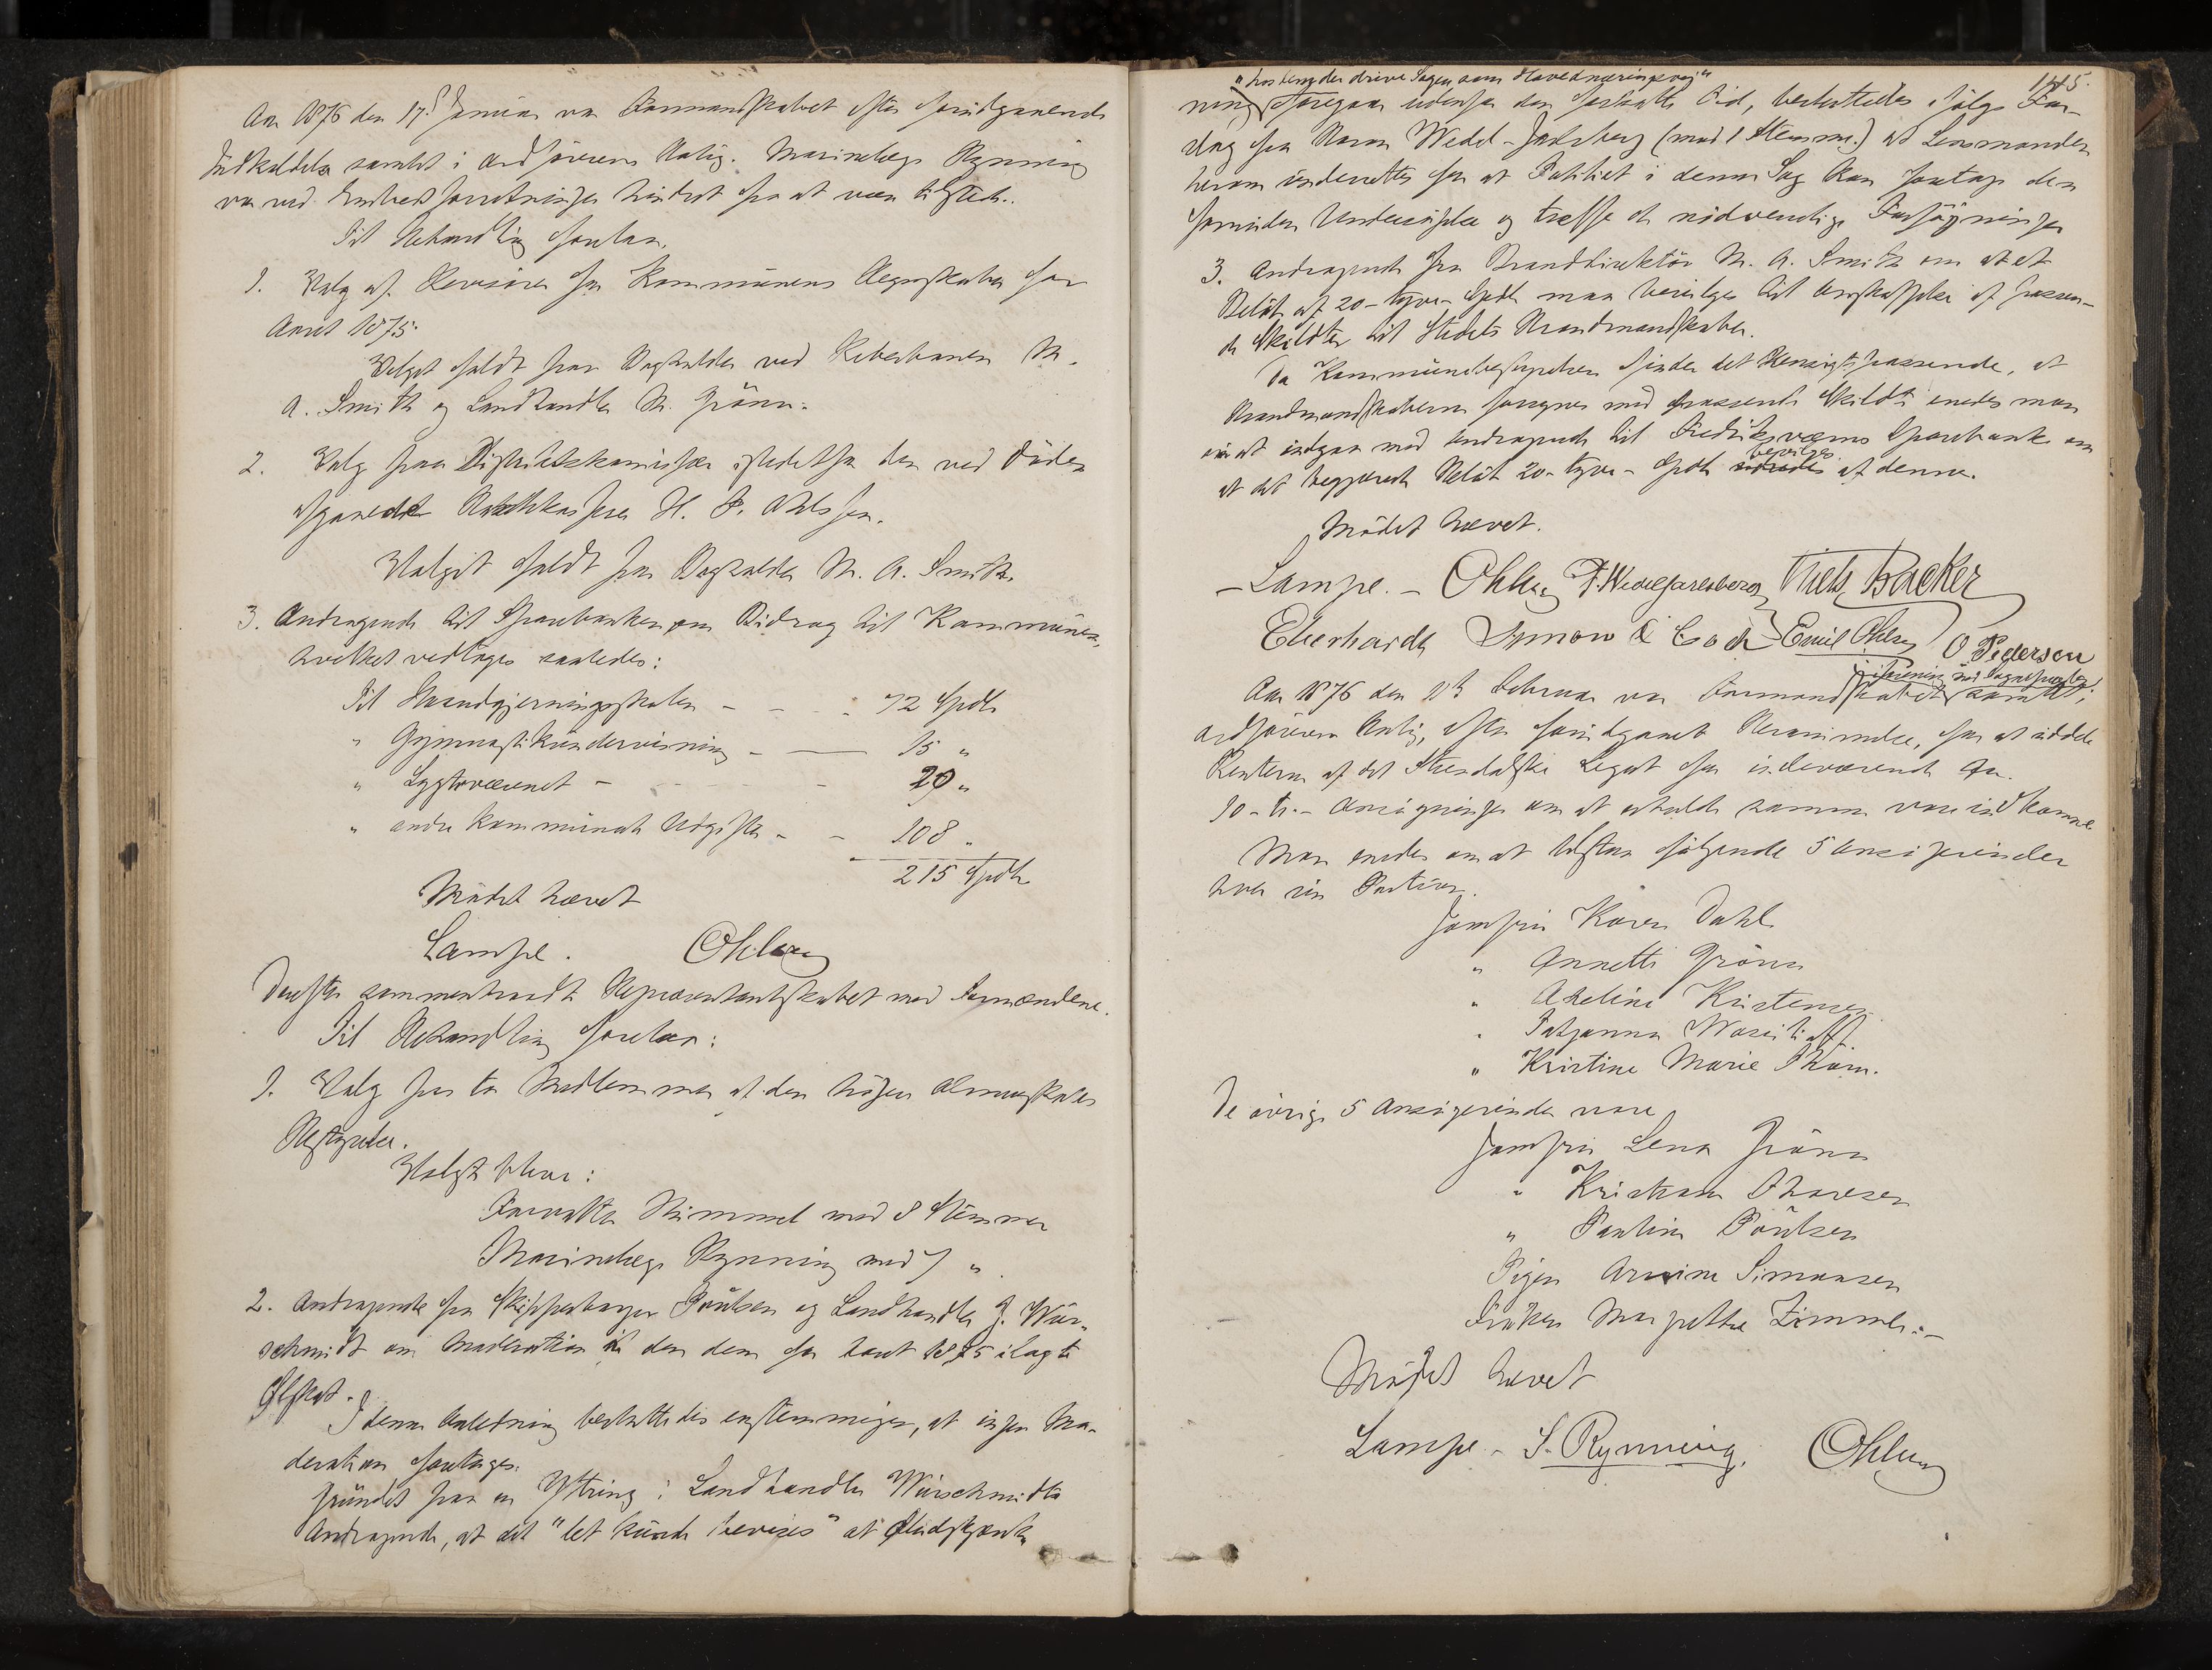 Aar 1876 den 17de Januar var Formandskabet efter forudgaaende
Indkaldelse samlet i Ordførerens Bolig. Marinelæge Rynning
var ved Embedsforretninger hindret fra at være tilstede.
Til Behandling forelaa.
1. Valg af Revisorer for Kommunens Regnskaber for
Aaret 1875.
Valget faldt paa Bogholder ved M.
A. Smith og Landhandler M. Grønn.
2. Valg paa Distriktskommissær istedetfor den ved Døden
afgaaede H. P. Ohlsen.
Valget faldt paa Bogholder M. A. Smith.
3. Andragende til Sparebanken om Bidrag til Kommunen,
hvilket vedtoges saaledes:
Til Haandgjerningsskolen - - - 72 Spdlr
" Gymnastikundervisning - 15 "
" Lygtevæsenet - - - - 20 "
" andre kommunale Udgifter - - 108 "
215 Spdlr
Mødet hævet
Lampe. Ohlsen
Derefter sammentraadte Repræsentantskabet med Formændene.
Til Behandling forelaa:
1. Valg paa to Medlemmer af den høiere Almueskoles
Bestyrelse.
Valgt blev:
Forvalter Himmel med 8 Stemmer
Marinelæge Rynning med 7 "
2. Andragende fra Skibsbygger Poulsen og Landhandler J. Wür-
schmidt om Moderation i den dem for Aaret 1875 ilagte
Skat.
I denne Anledning besluttedes enstemmigen, at ingen Mo-
deration foretages.
Grundet paa en Yttring i Landhandler Würschmidts
Andragende, at det "let kunde bevises" at Øludskjænk
145.
"hos Folk der drive Sagen som Hovednæringsvei"
ning foregaar udenfor den fastsatte Tid, besluttedes ifølge For-
slag fra Baron Wedel-Jarlsberg (mod 1 Stemme.) at Lensmanden
herom underrettes for at Politiet i denne Sag kan foretage den
fornødne Undersøgelse og træffe de nødvendige Forføininger
3. Andragende fra Branddirektør M. A. Smith om at et
Beløb af 20 - tyve - Spdlr maa bevilges til Anskaffelse af passen-
de Skildter til Stedets Brandmandskaber.
Da Kommunebestyrelsen finder det Hensigtspassende, at
Brandmandskaberne forsynes med passende Skildte enedes man
om at indgaa med Andragende til Fredriksværns Sparebank om
bevilges
at det begjærede Beløb 20 - tyve - Spdlr af denne.
Mødet hævet.
- Lampe. - Ohlsen F. Wedel Jarlsberg Niels Backer
Eberhardt Symon C Coch Emil Ohlsen O Pedersen
i Forening med Sognepresten
Aar 1876 den Februar var Formandskabet samlet i
Ordførerens Bolig, efter forudgaaet Berammelse, for at uddele
Renterne af det Legat for indeværende Aar.
10 - ti - Ansøgninger om at erholde samme vare indkomne
Man enedes om at tilstaa følgende 5 Ansøgerinder
hver sin Portion.
Jomfru Karen Dahl
" Annette Grønn
" Abeline Kristensen
" Tatjanna
" Kristine Marie Thorn.
De øvrige 5 Ansøgerinder vare
Jomfru Lena Grønn
" Kristiane Thoresen
" Pauline Poulsen
Pigen Simonsen
Frøken Margrethe Zimmer. -
Mødet hævet
Lampe - S. Rynning. Ohlsen